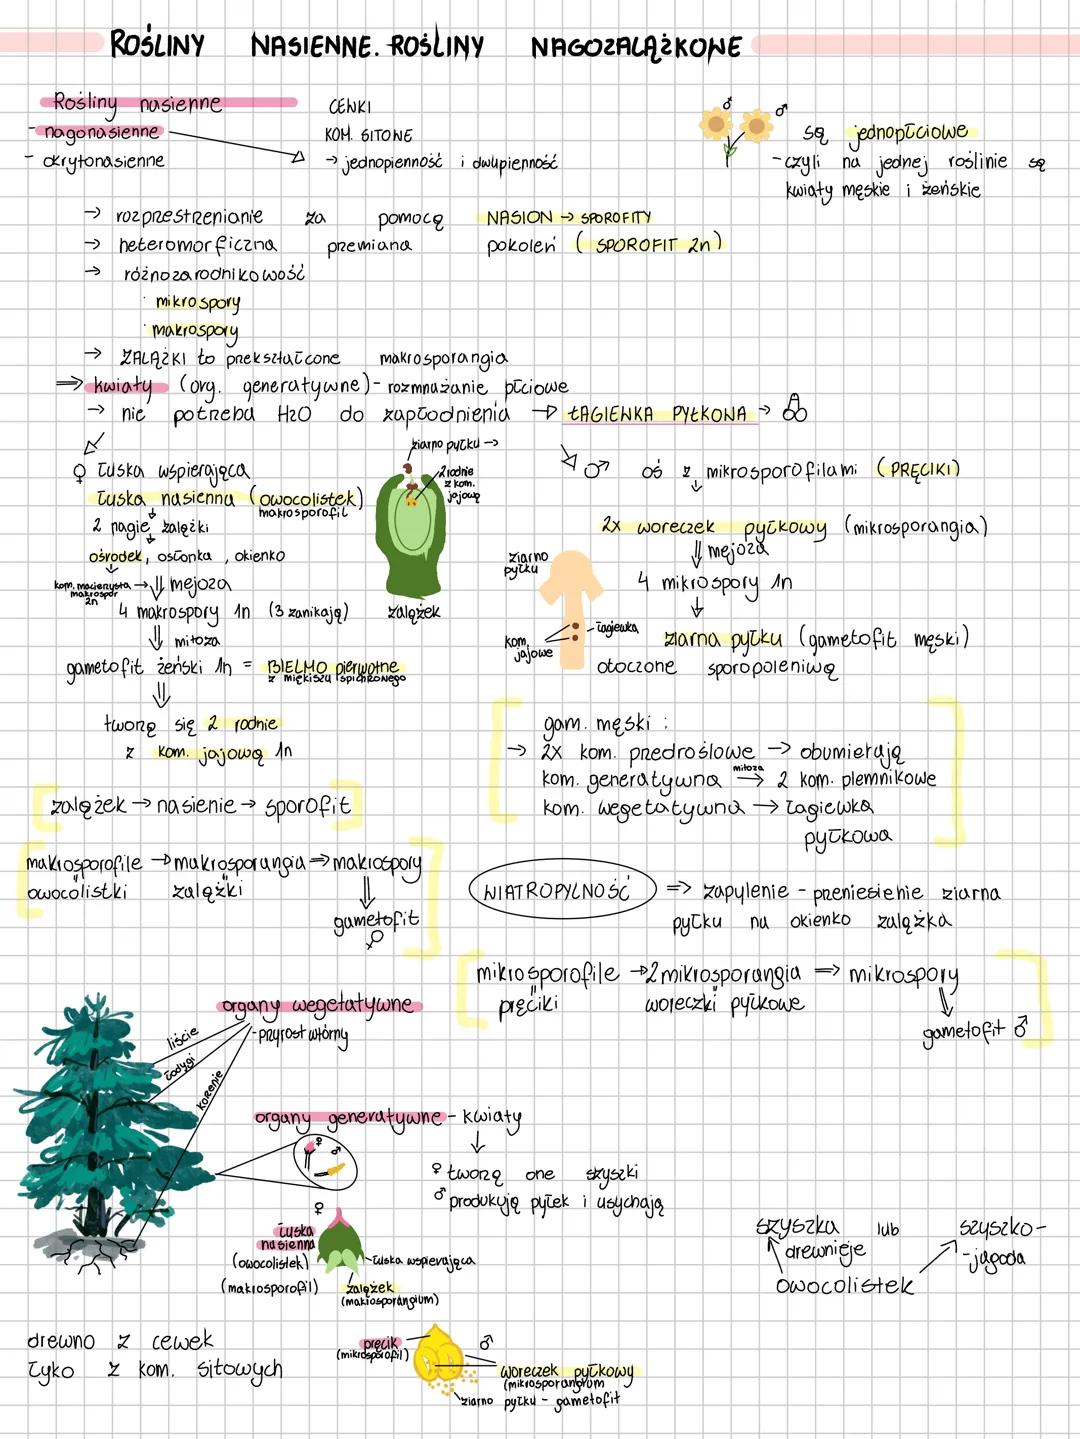 ROŚLINY NASIENNE. ROŚLINY NAGOZALĄŻKOWE
Rośliny nasienne
- nagonasienne
- okrytonasienne
CEWKI
KOM. SITOWE
→ jednopienność i dwupienność
♂ ♂
są jednopłciowe
- czyli na jednej roślinie są
kwiaty męskie i żeńskie
→ rozprzestrzenianie za pomocą NASION → SPOROFITY
→ heteromorficzna przemiana pokoleń (SPOROFIT 2n)
→ różnozarodnikowość
· mikrospory
· makrospory
→ ZALĄŻKI to przekształcone makrosporangia
⇒ kwiaty (org. generatywne) - rozmnażanie płciowe
→ nie potrzeba H2O do zapłodnienia → ŁAGIEWKA PYŁKOWA →
♀ łuska wspierająca
łuska nasienna (owocolistek)
makrosporofil
2 nagie zalążki
ośrodek, osłonka, okienko
kom. macierzysta makrospor 2n → ⇓ mejoza
4 makrospory 1n (3 zanikają)
⇓ mitoza
gametofit żeński 1n = BIELMO pierwotne
z miękiszu spichrzowego
⇓
tworzą się 2 rodnie
z kom. jajową 1n
ziarno pyłku →
2 rodnie
z kom.
jajową
zalążek
♂ oś z mikrosporofilami (PRĘCIKI)
2x woreczek pyłkowy (mikrosporangia)
⇓ mejoza
4 mikrospory 1n
↓
ziarna pyłku (gametofit męski)
otoczone sporopoleniną
ziarno
pyłku
- łagiewka
kom.
jajowe
gam. męski :
→ 2x kom. przedroślowe → obumierają
kom. generatywna mitoza → 2 kom. plemnikowe
kom. wegetatywna → łagiewka
pyłkowa
[zalążek → nasienie → sporofit]
makrosporofile → makrosporangia ⇒ makrospory
owocolistki zalążki
⇓
gametofit
♀
WIATROPYLNOŚĆ ⇒ zapylenie - przeniesienie ziarna
pyłku na okienko zalążka
mikrosporofile → 2 mikrosporangia ⇒ mikrospory
pręciki woreczki pyłkowe
⇓
gametofit ♂
organy wegetatywne
- przyrost wtórny
liście
łodygi
korzenie
organy generatywne - kwiaty
↓
♀ tworzą one szyszki
♂ produkują pyłek i usychają
♀ ♂
♀
łuska
nasienna
(owocolistek)
(makrosporofil)
- łuska wspierająca
zalążek
(makrosporangium)
szyszka lub szyszko-
drewnieje - jagoda
owocolistek
drewno z cewek
łyko z kom. sitowych
pręcik
(mikrosporofil)
♂
woreczek pyłkowy
(mikrosporangium
ziarno pyłku - gametofit